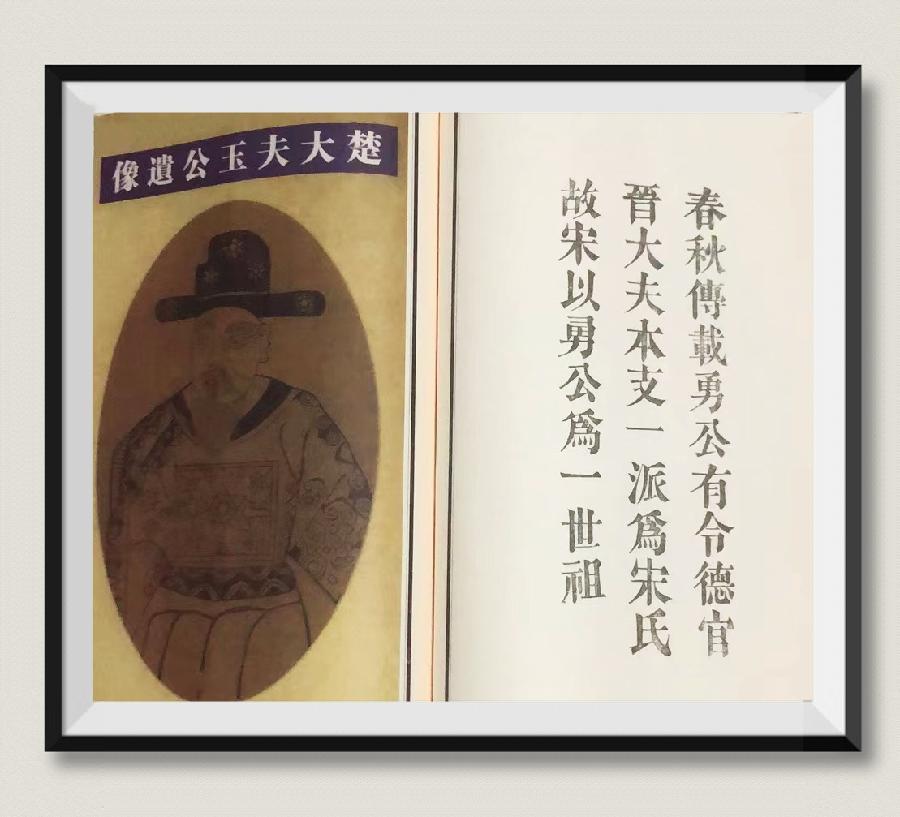 楚大夫玉公遺像
春秋傳載勇公有令德官
晉大夫本支一派爲宋氏
故宋以勇公爲一世祖